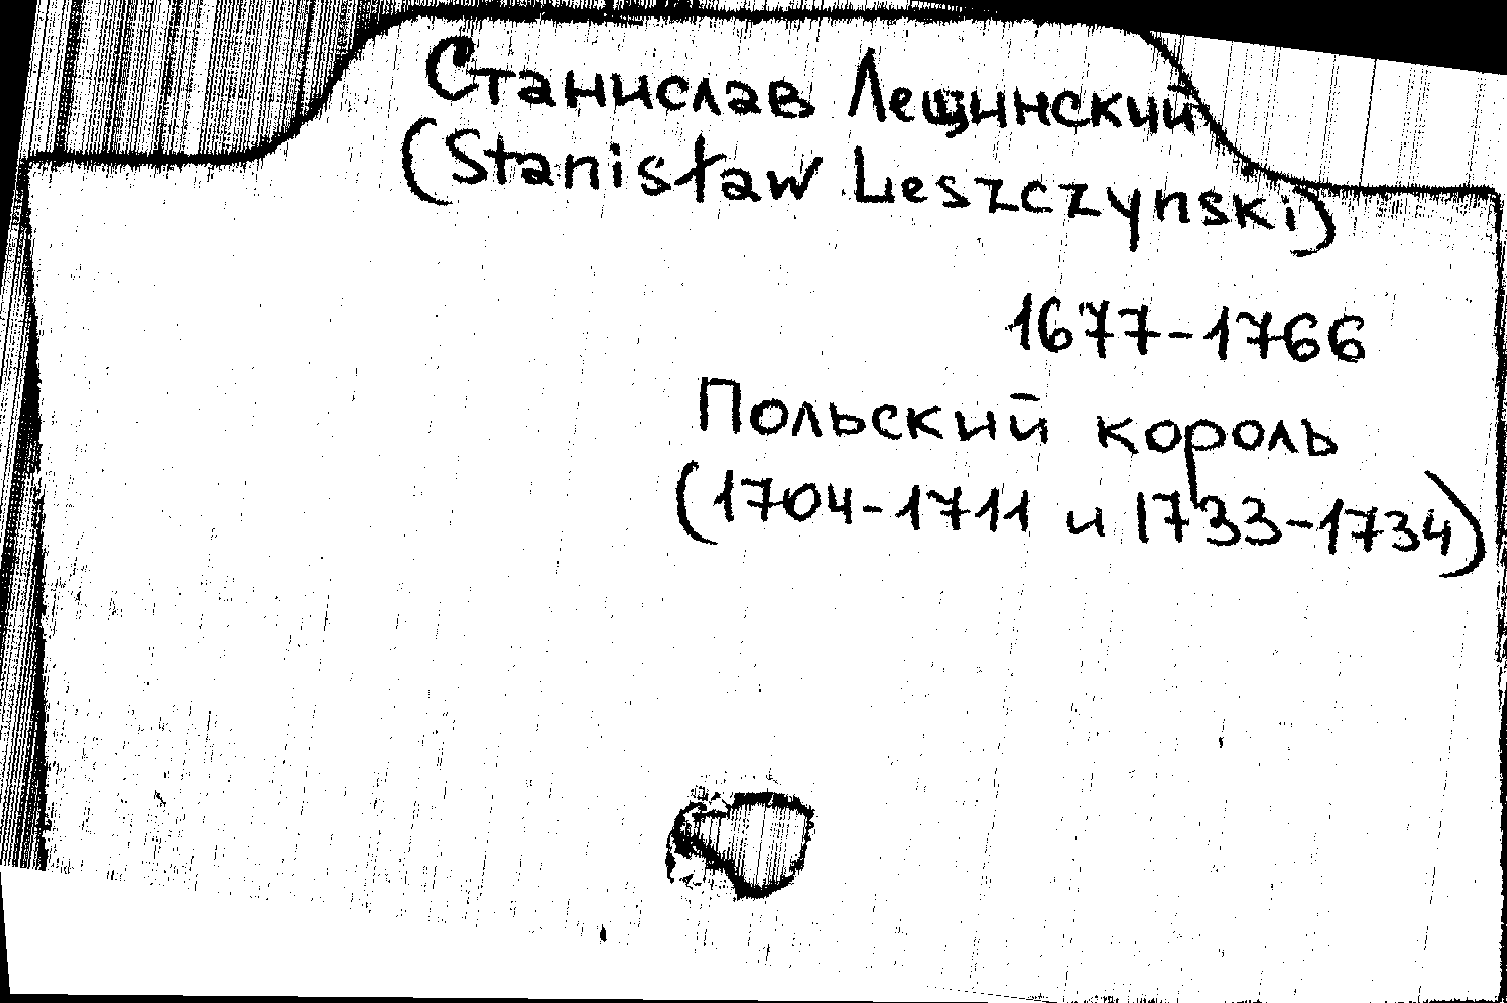 Станислав Лещинский
(Stanisław Leszczynski)
1677-1766
Польский король
(1704-1711 и 1733-1734)